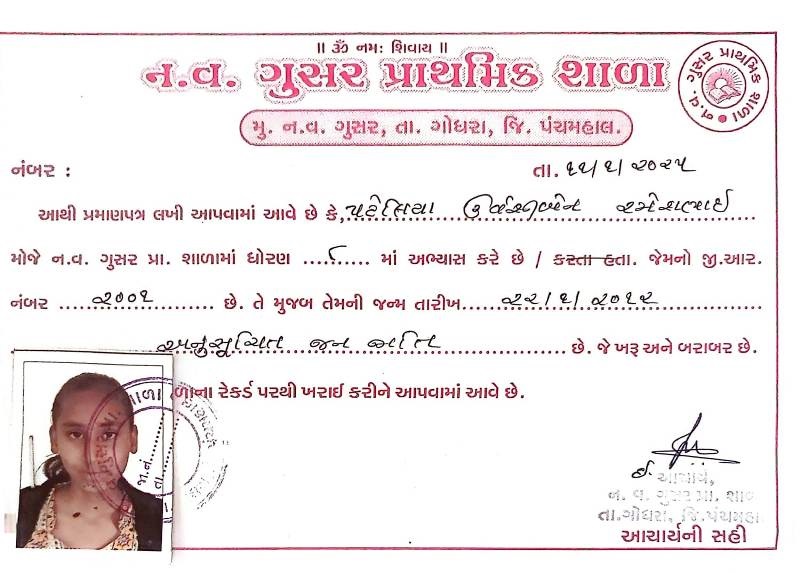 ॥ ૐ નમઃ શિવાય ॥
ન.વ. ગુસર પ્રાથમિક શાળા
ન.વ. ગુસર પ્રાથમિક શાળા
મુ. ન.વ. ગુસર, તા. ગોધરા, જિ. પંચમહાલ.
નંબર : તા. ૧૫/૧/૨૦૨૫
આથી પ્રમાણપત્ર લખી આપવામાં આવે છે કે, પટેલિયા ઉર્વશીબેન રમેશભાઈ
મોજે ન.વ. ગુસર પ્રા. શાળામાં ધોરણ ......૮...... માં અભ્યાસ કરે છે / કરતા હતા. જેમનો જી.આર.
નંબર ....૨૦૦૧.... છે. તે મુજબ તેમની જન્મ તારીખ....૨૨/૧/૨૦૧૨....
અનુસૂચિત જન જાતિ છે. જે ખરૂ અને બરાબર છે.
ળાના રેકર્ડ પરથી ખરાઈ કરીને આપવામાં આવે છે.
જા.નં.
તા.
ઈ. આચાર્ય,
ન. વ. ગુસર પ્રા. શાળ
તા.ગોધરા, જિ.પંચમહા
આચાર્યની સહી